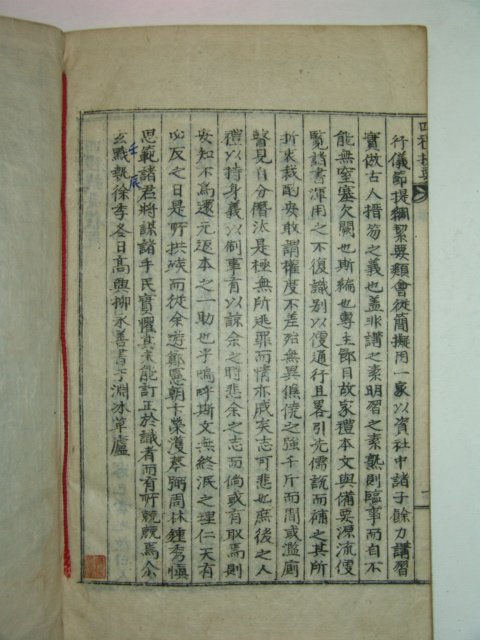 四禮提要
行儀節提綱絜要類會從簡擬用一家以資社中諸子餘力講習
實倣古人搢笏之義也盖非講之素明習之素熟則臨事而自不
能無窒塞欠闕也斯編也專主節目故家禮本文與備要源流便
覽諸書渾用之不復識別以便通行且畧引先儒說而補之其所
折衷裁酌安敢謂權度不差殆無異僬僥之強千斤而間或濫廁
瞽見自分僭汰是極無所逃罪而情亦戚矣志可悲也庶後之人
禮以持身義以制事有以諒余之時悲余之志而倘或有取焉則
安知不爲還元返本之一助也乎嗚呼斯文無終泯之理仁天有
必反之日是所拱竢而從余遊鄭憲朝卞榮濩蔡弼周林鍾秀愼
思範諸君將謀諸手民實懼其未能訂正於識者而有所兢兢焉余
壬辰
玄黓執徐季冬日高興柳永善書于淵冰草廬